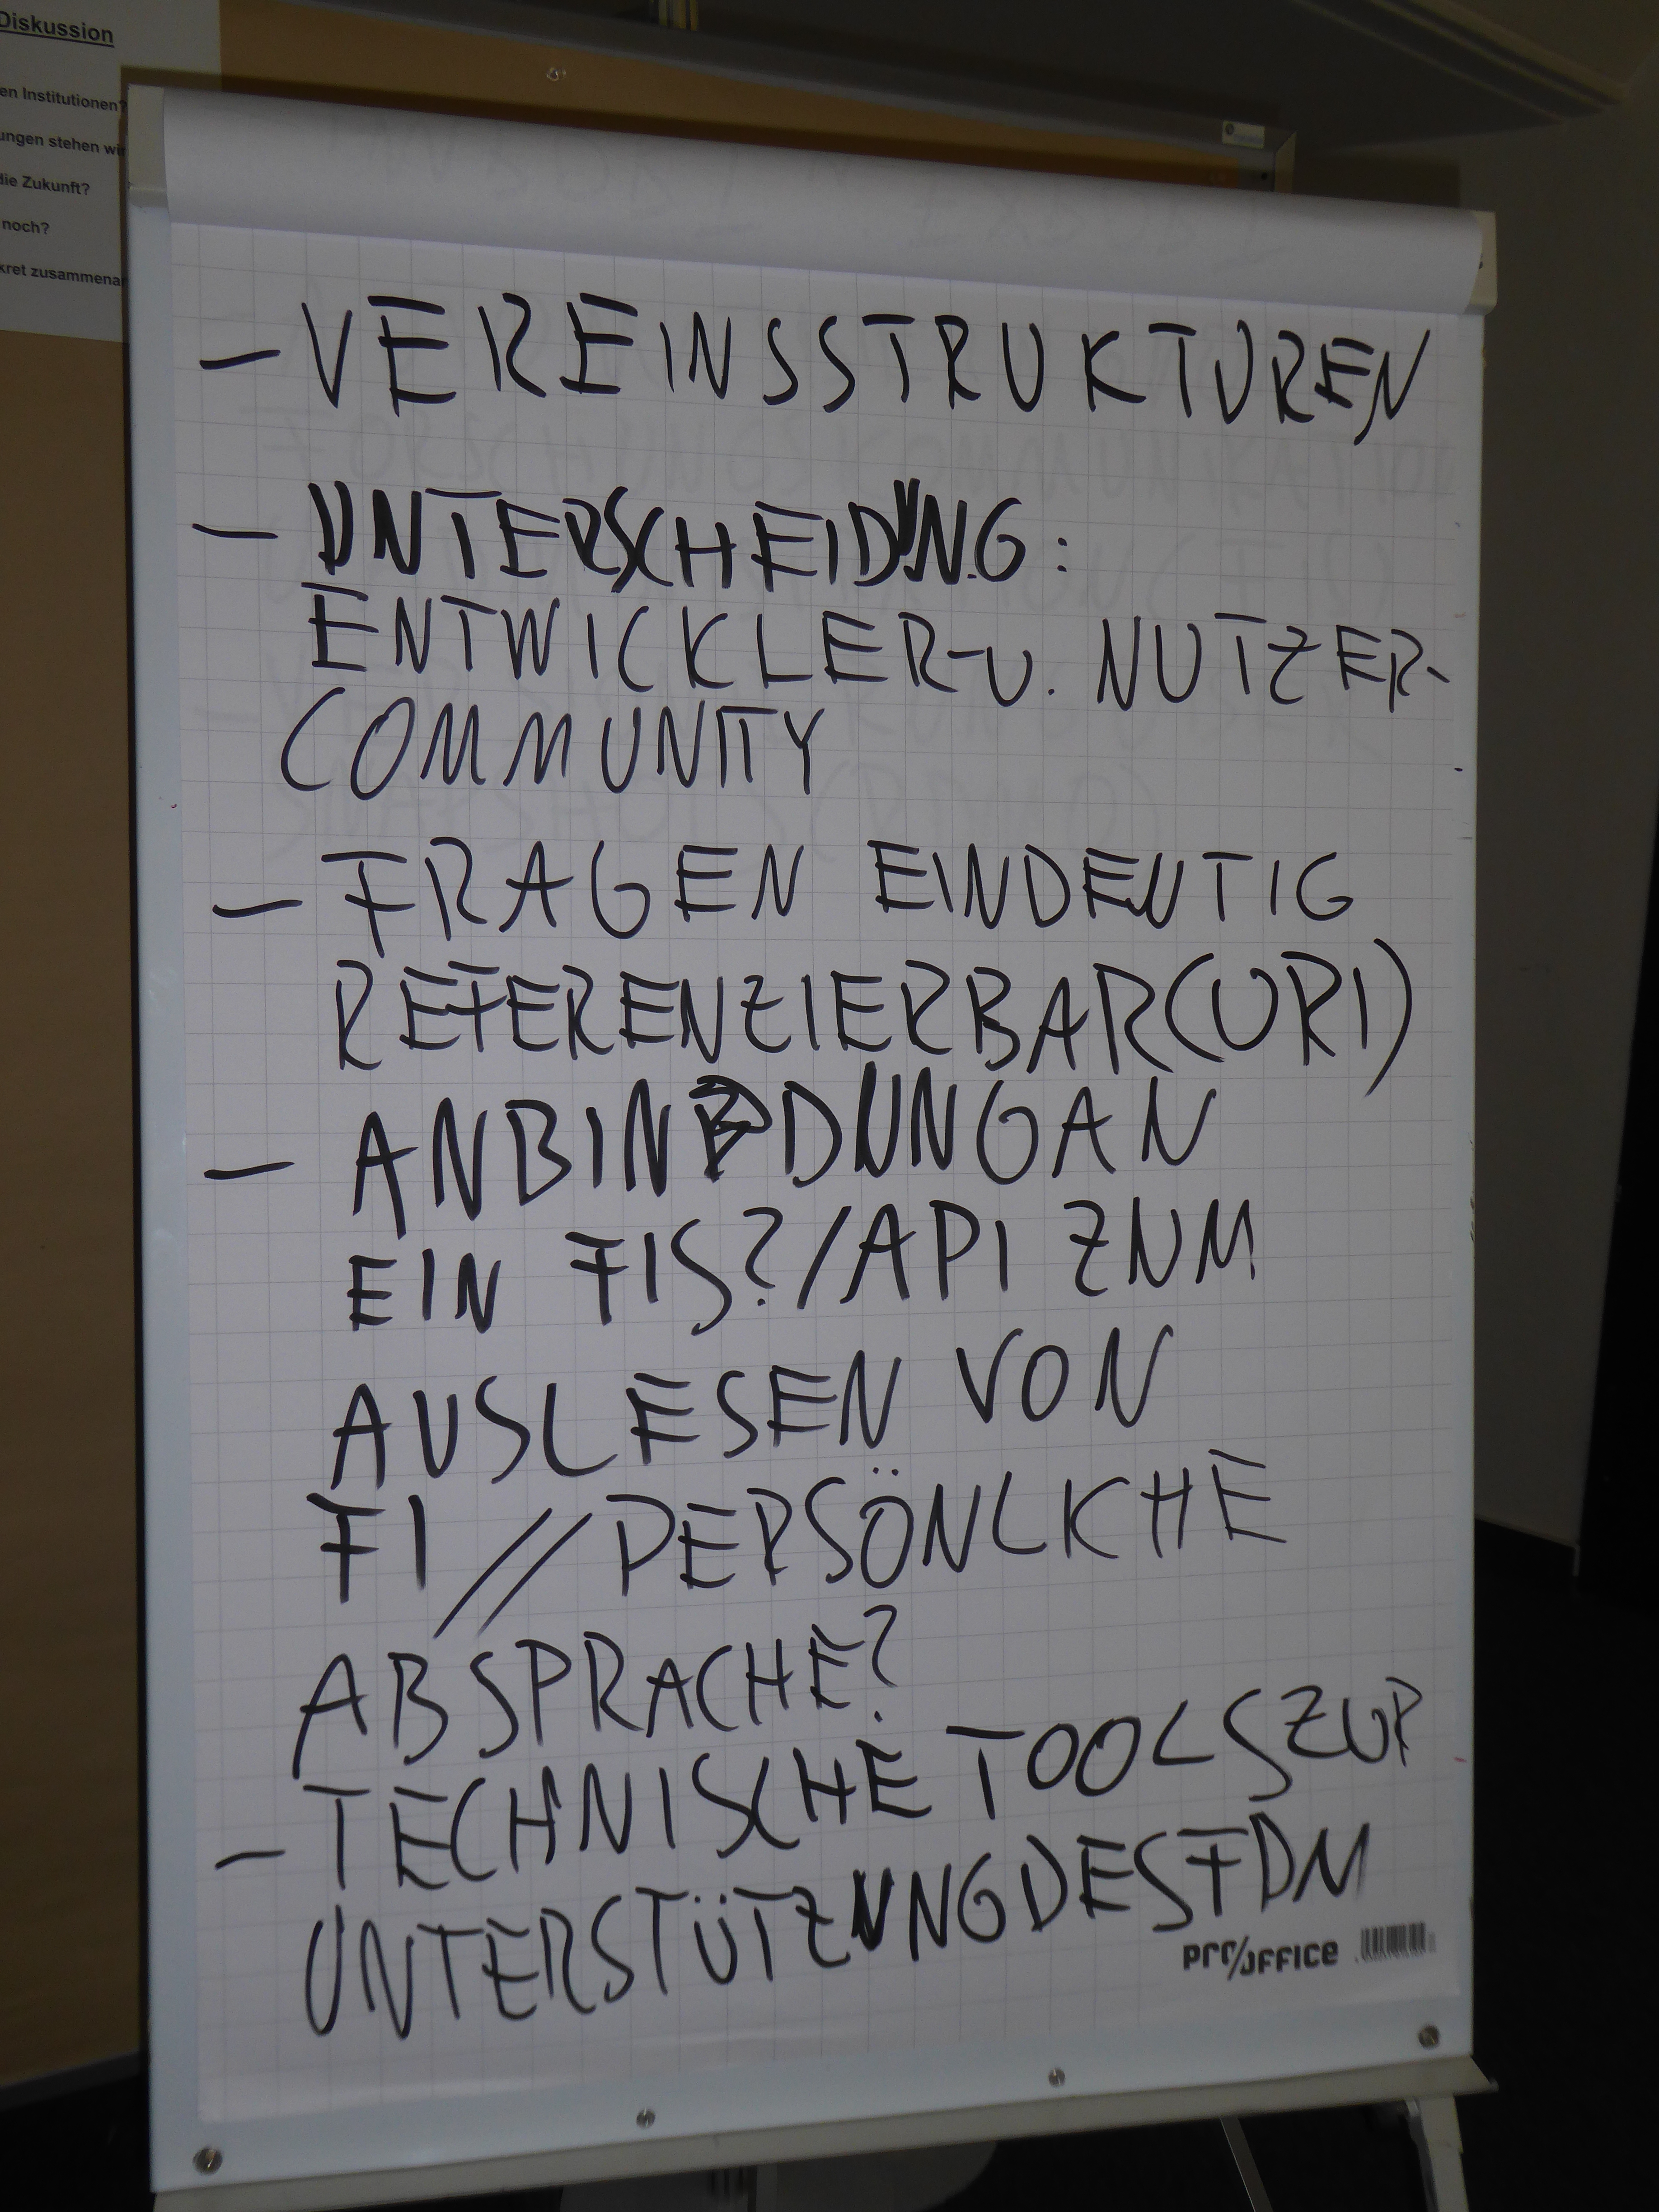 Diskussion
en Institutionen?
ungen stehen wir
die Zukunft?
noch?
kret zusammenar
- VEREINSSTRUKTUREN
- UNTERSCHEIDUNG:
ENTWICKLER-U. NUTZER-
COMMUNITY
- FRAGEN EINDEUTIG
REFERENZIERBAR(URI)
- ANBINDUNG AN
EIN FIS?/API ZUM
AUSLESEN VON
FI // PERSÖNLKHE
ABSPRACHE?
- TECHNISCHE TOOLS ZUR
UNTERSTÜTZUNG DES FDM
pro/OFFICE